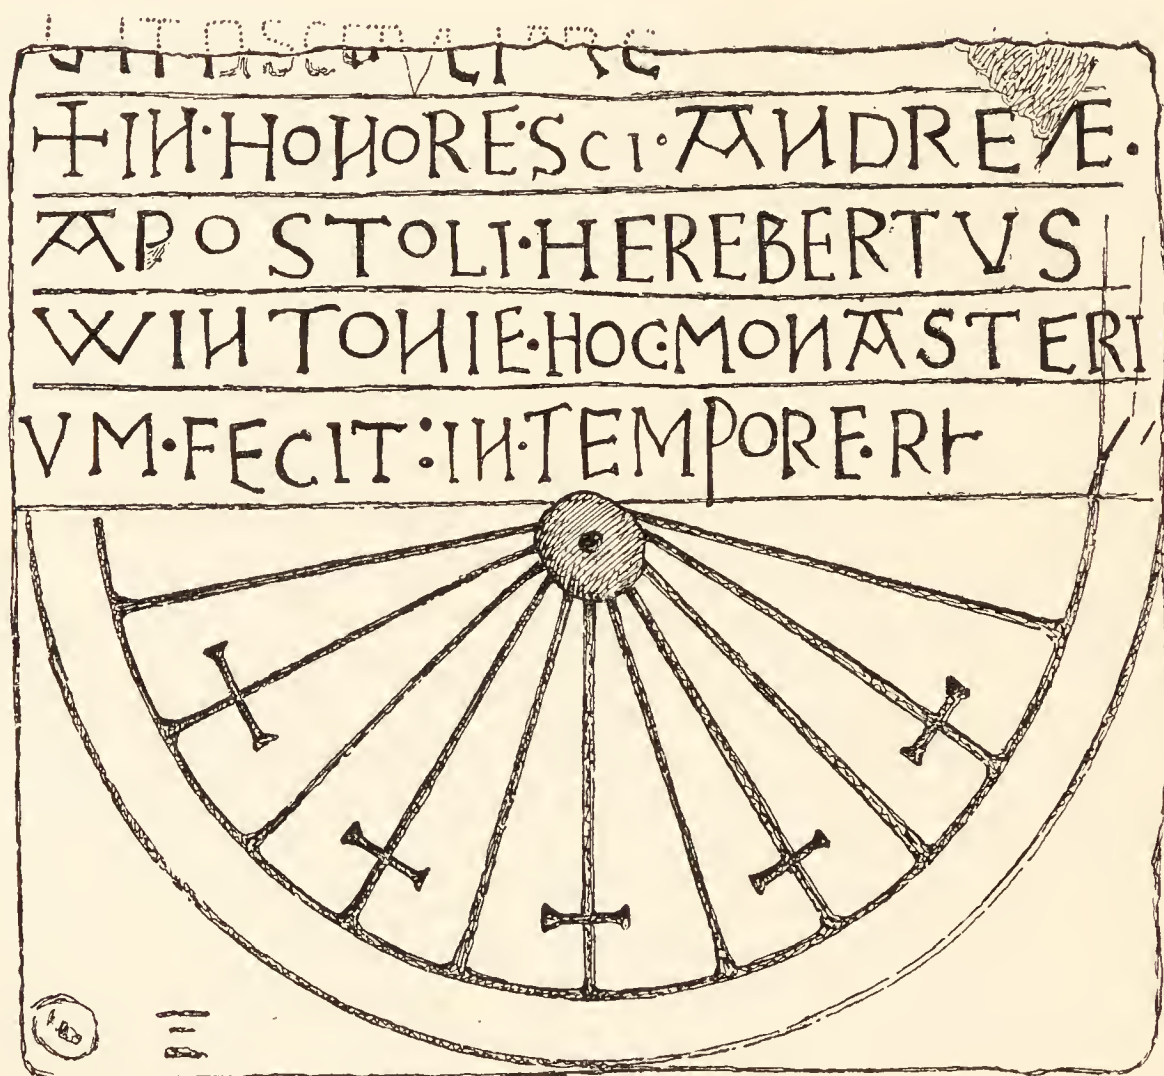 +IN·HONORE·SCI·ANDREÆ·
APOSTOLI·HEREBERTVS
WINTONIE·HOC·MONASTERI
VM·FECIT:IN·TEMPORE·RE